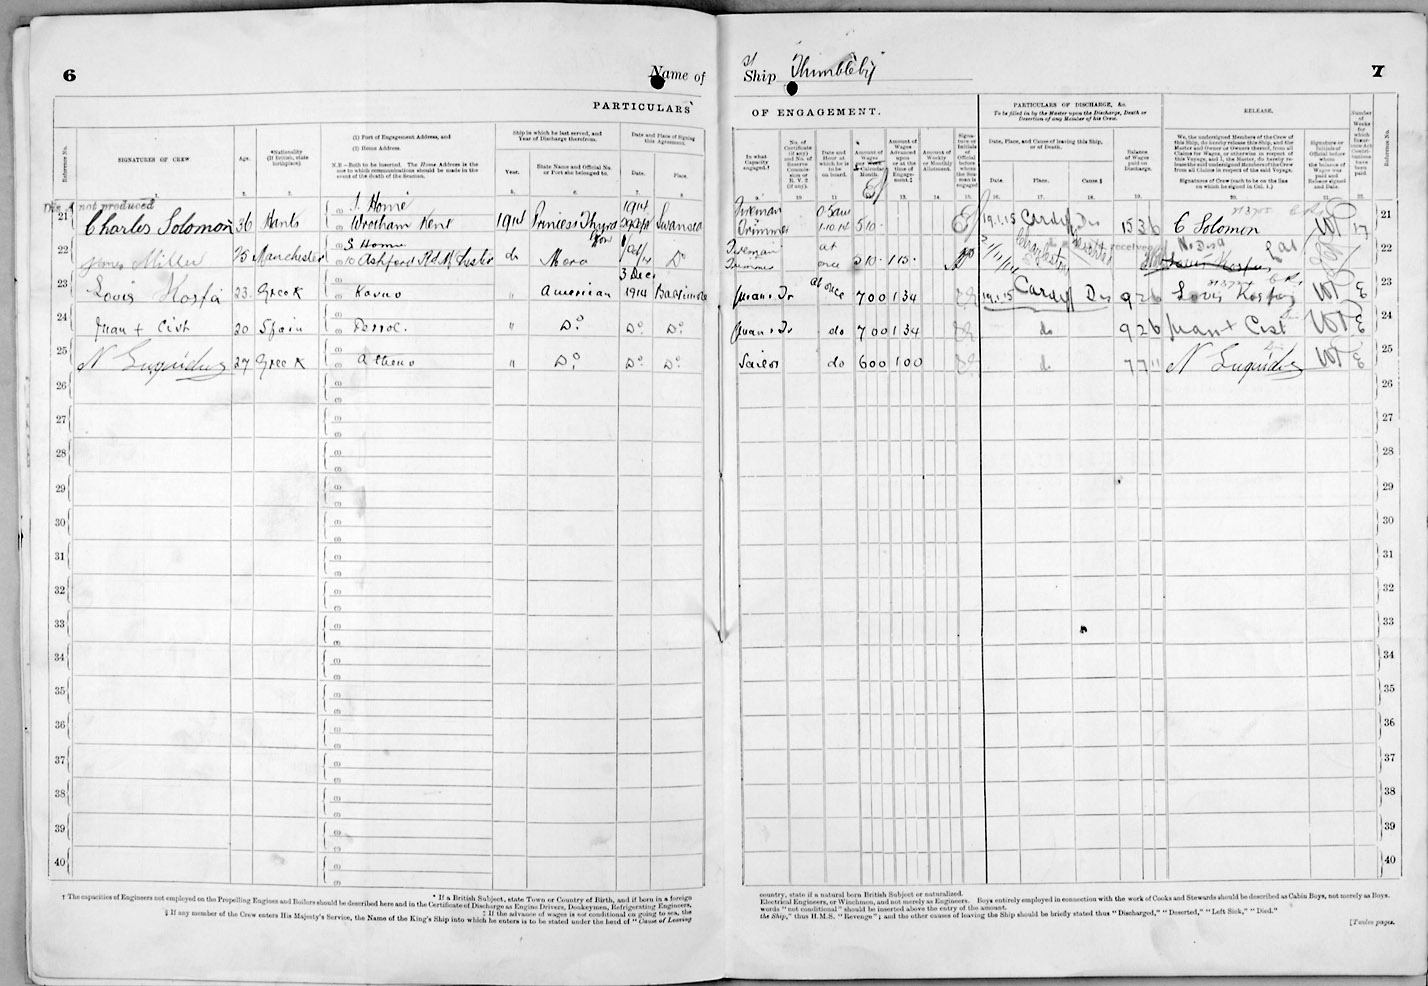 6
Name of
PARTICULARS
Reference No.
SIGNATURES OF CREW
Age.
*Nationality
(If British, state
birthplace).
(1) Port of Engagement Address, and
(2) Home Address.
N.B.—Both to be inserted. The Home Address is the
one to which communications should be made in the
event of the death of the Seaman.
Ship in which he last served, and
Year of Discharge therefrom.
Year.
State Name and Official No.
or Port she belonged to.
Date and Place of Signing
this Agreement.
Date.
Place.
Dis. A not produced
21 Charles Solomon 36 Hants
Home
Wrotham Kent 1914 Princess Thyra 1914 Swansea
22 James Miller 25 Manchester
Home
10 Ashford Rd do Mora Do
23 Louis Hosfa 23 Greek Kavno " American 3 Dec 1914 Baltimore
24 Juan + Cist 20 Spain Ferrol. " Do Do Do
25 N 27 Greek Atheno " Do Do Do
26
27
28
29
30
31
32
33
34
35
36
37
38
39
40
† The capacities of Engineers not employed on the Propelling Engines and Boilers should be described here and in the Certificate of Discharge as Engine Drivers, Donkeymen, Refrigerating Engineers,
* If a British Subject, state Town or Country of Birth, and if born in a foreign
‡ If the advance of wages is not conditional on going to sea, the
§ If any member of the Crew enters His Majesty's Service, the Name of the King's Ship into which he enters is to be stated under the head of "Cause of Leaving
Ship Thimbleby
7
OF ENGAGEMENT.
PARTICULARS OF DISCHARGE, &c.
To be filled in by the Master upon the Discharge, Death or
Desertion of any Member of his Crew.
RELEASE.
In what
Capacity
engaged.†
No. of
Certificate
(if any)
and No. of
Reserve
Commis-
sion or
R. V. 2
(if any).
Date and
Hour at
which he is
to be
on board.
Amount of
Wages
per Calendar
Month.
Amount of
Wages
Advanced
upon
or at the
time of
Engage-
ment.‡
Amount of
Weekly
or Monthly
Allotment.
Signa-
ture or
Initials
of
Official
before
whom
the Sea-
man is
engaged
Date, Place, and Cause of leaving this Ship,
or of Death.
Date.
Place.
Cause.§
Balance
of Wages
paid on
Discharge.
We, the undersigned Members of the Crew of
this Ship, do hereby release this Ship, and the
Master and Owner or Owners thereof, from all
Claims for Wages, or otherwise in respect of
this Voyage, and I, the Master, do hereby re-
lease the said undersigned Members of the Crew
from all Claims in respect of the said Voyage.
Signatures of Crew (each to be on the line
on which he signed in Col. 1.)
Signature or
Initials of
Official before
whom
the balance of
Wages was
paid and
Release signed
and Dated.
Number
of
Weeks
for
which
Insur-
ance Act
Contri-
butions
have
been
paid.
Reference No.
Fireman
Trimmer 5 10 19.1.15 Cardiff Dis 15 3 6 C Solomon 17 21
Fireman at
Trimmer once 5 10 22
at once 7 00 1 34 19.1.15 Cardiff Dis 9 2 6 Louis 23
do 7 00 1 34 do 9 2 6 Juan + Cist 24
Sailor do 6 00 1 00 do 7 7 11 N 25
26
27
28
29
30
31
32
33
34
35
36
37
38
39
40
country, state if a natural born British Subject or naturalized.
Electrical Engineers, or Winchmen, and not merely as Engineers. Boys entirely employed in connection with the work of Cooks and Stewards should be described as Cabin Boys, not merely as Boys.
words "not conditional" should be inserted above the entry of the amount.
the Ship," thus H.M.S. "Revenge"; and the other causes of leaving the Ship should be briefly stated thus "Discharged," "Deserted," "Left Sick," "Died."
[Twelve pages.